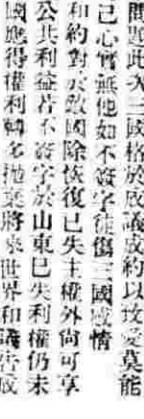 問題此次三國格於成議成約以致愛莫能
己心實無他如不簽字徒傷三國感情
和約對於敝國除恢復已失主權外尙可享
公共利益若不簽字於山東已失利權仍未
國應得權利轉多拋棄將來世界和議告成